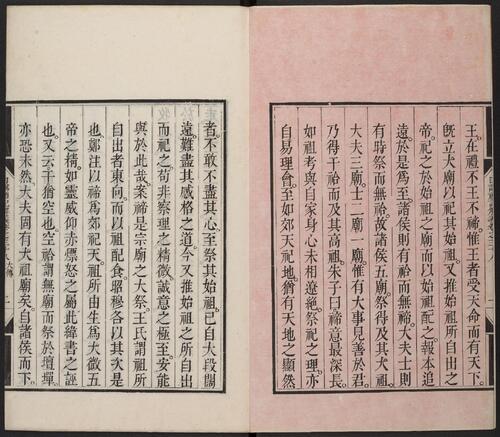 王在禮不王不禘惟王者受天命而有天下
旣立大廟以祀其始祖又推始祖所自出之
帝祀之於始祖之廟而以始祖配之報本追
遠於是爲至諸侯則有祫而無禘大夫士則
有時祭而無祫故諸侯五廟祭得及其大祖
大夫三廟士二廟一廟惟有大事見善於君
乃得干祫而及其高祖朱子曰禘意最深長
如祖考與自家身心未相遼絶祭祀之理亦
自易理會至如郊天祀地猶有天地之顯然
者不敢不盡其心至祭其始祖已自大段闊
遠難盡其感格之道今又推始祖之所自出
而祀之苟非察理之精微誠意之極至安能
與於此哉案禘是宗廟之大祭王氏謂祖所
自出者東向而以祖配食昭穆各以其次是
也鄭注以禘爲郊祀天祖所由生爲大微五
帝之精如靈威仰赤熛怒之屬此緯書之誣
也又云干猶空也空祫謂無廟而祭於壇墠
亦恐未然大夫固有大祖廟矣自諸侯而下